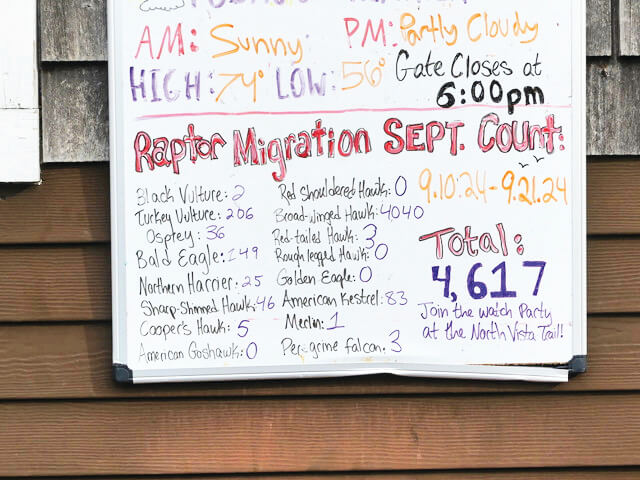 AM: Sunny PM: Partly Cloudy
HIGH: 74° LOW: 56° Gate Closes at
6:00pm
Raptor Migration SEPT. Count:
Black Vulture: 2
Turkey Vulture: 206
Osprey: 36
Bald Eagle: 149
Northern Harrier: 25
Sharp-Shinned Hawk: 46
Cooper's Hawk: 5
American Goshawk: 0
Red Shouldered Hawk: 0
Broad-winged Hawk: 4040
Red-tailed Hawk: 3
Rough legged Hawk: 0
Golden Eagle: 0
American Kestrel: 83
Merlin: 1
Peregrine falcon: 3
9.10.24-9.21.24
Total:
4,617
Join the watch Party
at the North Vista Trail!